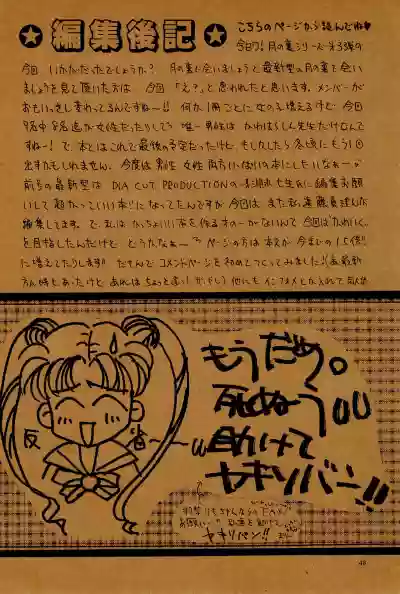 編集後記
こちらのページから読んだね♥
今日わ!月の裏シリーズ第3弾の
今回いかがだったでしょうか?月の裏に会いましょうと最新型の月の裏で会い
ましょうを見て頂いた方は今回「え?」と思われたと思います。メンバーが
おもいっきし変わってるんですねー!!何か1冊ごとに女の子増えるけど今回
9名中8名迄が女性だったりして。唯一男性はかわはらしん先生だけなんで
すねー!で、本とはこれで最後の予定だったけど、もしかしたら冬頃にもう1回
出すかもしれません。今度は男性女性両方いっぱいの本にしたいなぁー
前号の最新型はDIA CUT PRODUCTIONの
に編集お願
いして超かっこいい本になってたんですが今回はまたもや遠藤真理んが
編集してます。で、私はかっこいい本を作るすのーがないんで今回はかわいく
を目指したんだけどどうかなぁー
ページの方は本文が今までの1.5倍!!
に増えてたりします!!
コメントページを初めてつくってみました!
もうだめ。
死ぬーう
助けて
ヤキソバン!!
反省〜〜
ヤキソバン!!
48